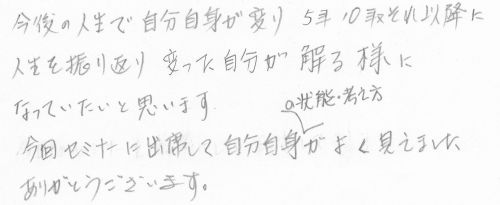 今後の人生で自分自身が変り 5年、10年それ以降に
人生を振り返り 変った自分が 解る様に
なっていたいと思います
の状態・考え方
今回セミナーに出席して自分自身がよく見えました
ありがとうございます。